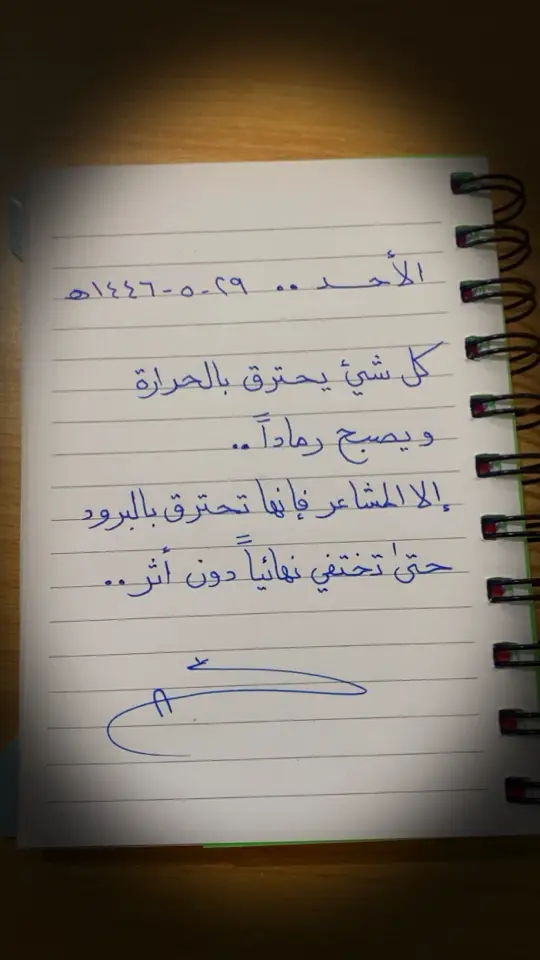 الأحــد .. ٢٩-٥-١٤٤٦ه
كل شيئ يحترق بالحرارة
ويصبح رماداً ..
إلا المشاعر فإنها تحترق بالبرود
حتىٰ تختفي نهائياً دون أثر ..